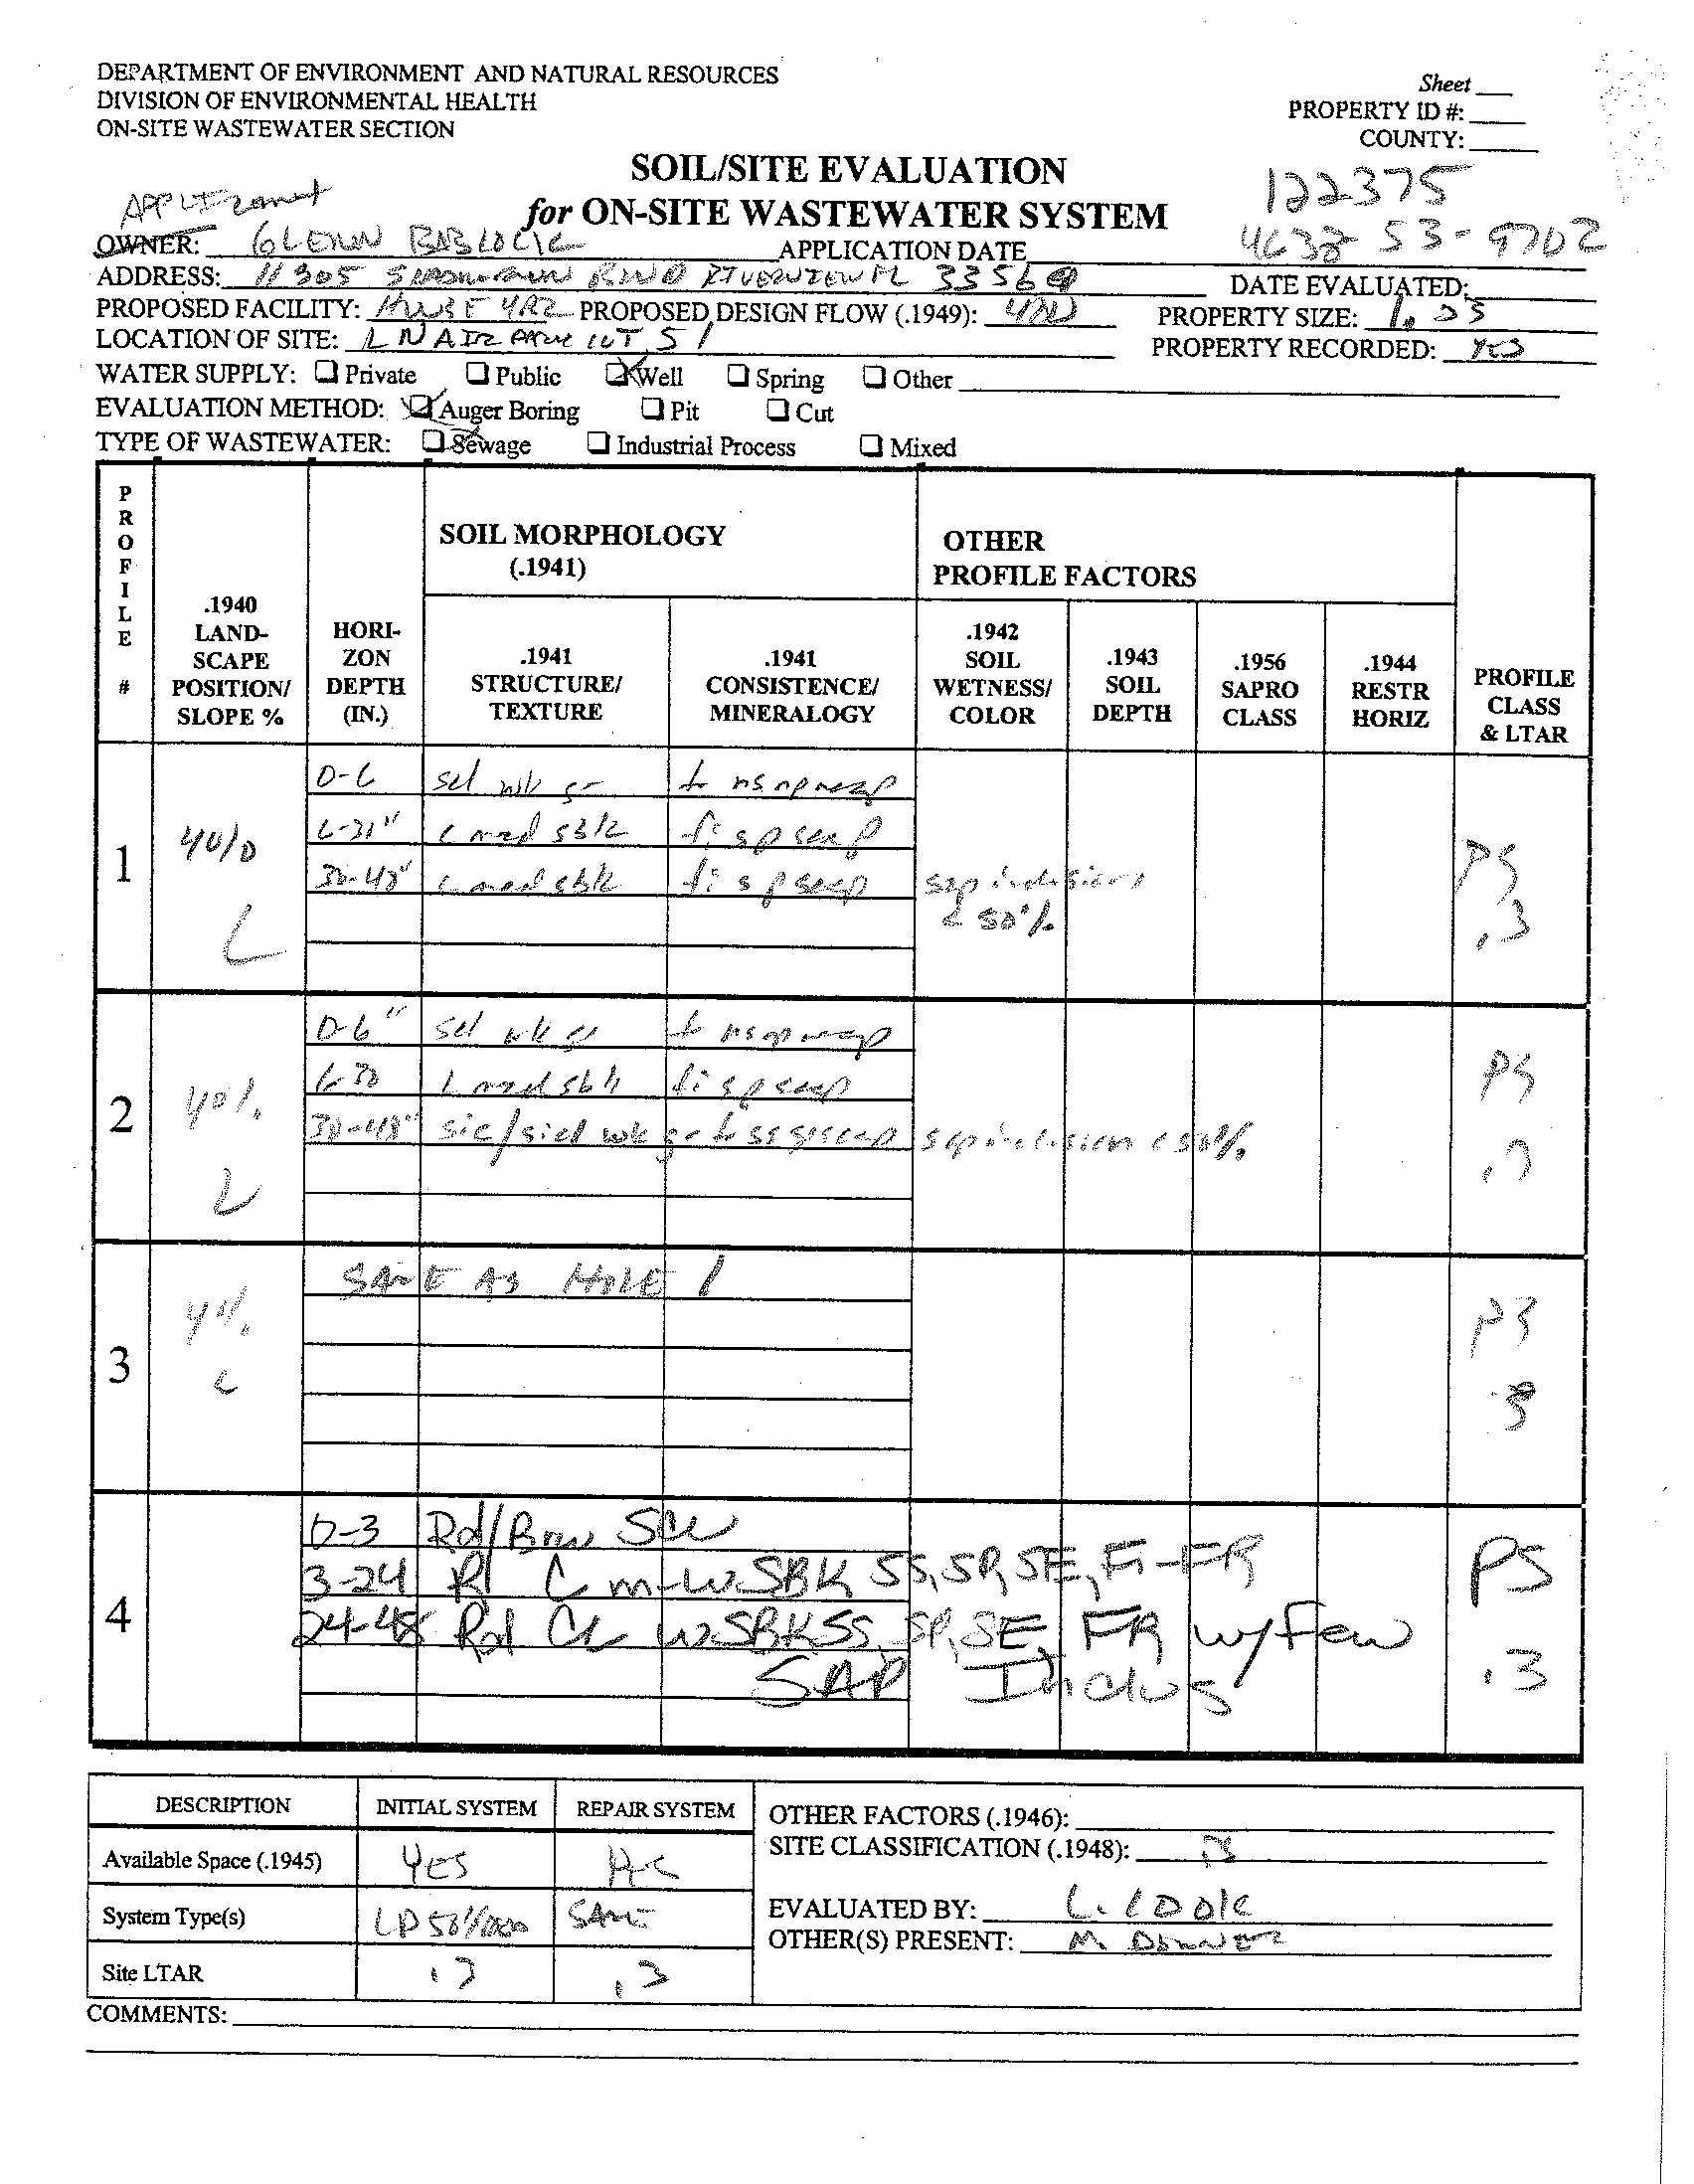 DEPARTMENT OF ENVIRONMENT AND NATURAL RESOURCES
DIVISION OF ENVIRONMENTAL HEALTH
ON-SITE WASTEWATER SECTION
Sheet
PROPERTY ID #:
COUNTY:
SOIL/SITE EVALUATION
for ON-SITE WASTEWATER SYSTEM
122375
4638 53-9702
OWNER: GLENN APPLICATION DATE
ADDRESS: 11305 RIVERVIEW FL 33569 DATE EVALUATED:
PROPOSED FACILITY: HOUSE 4BR PROPOSED DESIGN FLOW (.1949): PROPERTY SIZE:
LOCATION OF SITE: LN AIR PARK LOT 51 PROPERTY RECORDED: YES
WATER SUPPLY: Private Public Well Spring Other
EVALUATION METHOD: Auger Boring Pit Cut
TYPE OF WASTEWATER: Sewage Industrial Process Mixed
PROFILE #
.1940 LAND-SCAPE POSITION/ SLOPE %
HORI-ZON DEPTH (IN.)
SOIL MORPHOLOGY (.1941)
.1941 STRUCTURE/ TEXTURE
.1941 CONSISTENCE/ MINERALOGY
OTHER PROFILE FACTORS
.1942 SOIL WETNESS/ COLOR
.1943 SOIL DEPTH
.1956 SAPRO CLASS
.1944 RESTR HORIZ
PROFILE CLASS & LTAR
1
L
0-6 scl wk gr
c mod sbk fi sp sexp
30-48" c mod sbk fi sp sexp sap inclusions
< 50%
PS
.3
2
L
0-6" scl wk gr
6-30 c mod sbk fi sp sexp
30-48" sic/sicl wk gr sap inclusion < 50%
PS
3
SAME AS HOLE 1
PS
4
0-3 Rd/Brw
3-24 C m-wSBK SS,SP,SE,Fi-FR
24-48 Rd CL wSBK SS, SP, SE, FR w/Few
SAP Inclus
PS
.3
DESCRIPTION INITIAL SYSTEM REPAIR SYSTEM
Available Space (.1945) YES
System Type(s) SAME
Site LTAR .3 .3
OTHER FACTORS (.1946):
SITE CLASSIFICATION (.1948): PS
EVALUATED BY: L. COOK
OTHER(S) PRESENT: M.
COMMENTS: